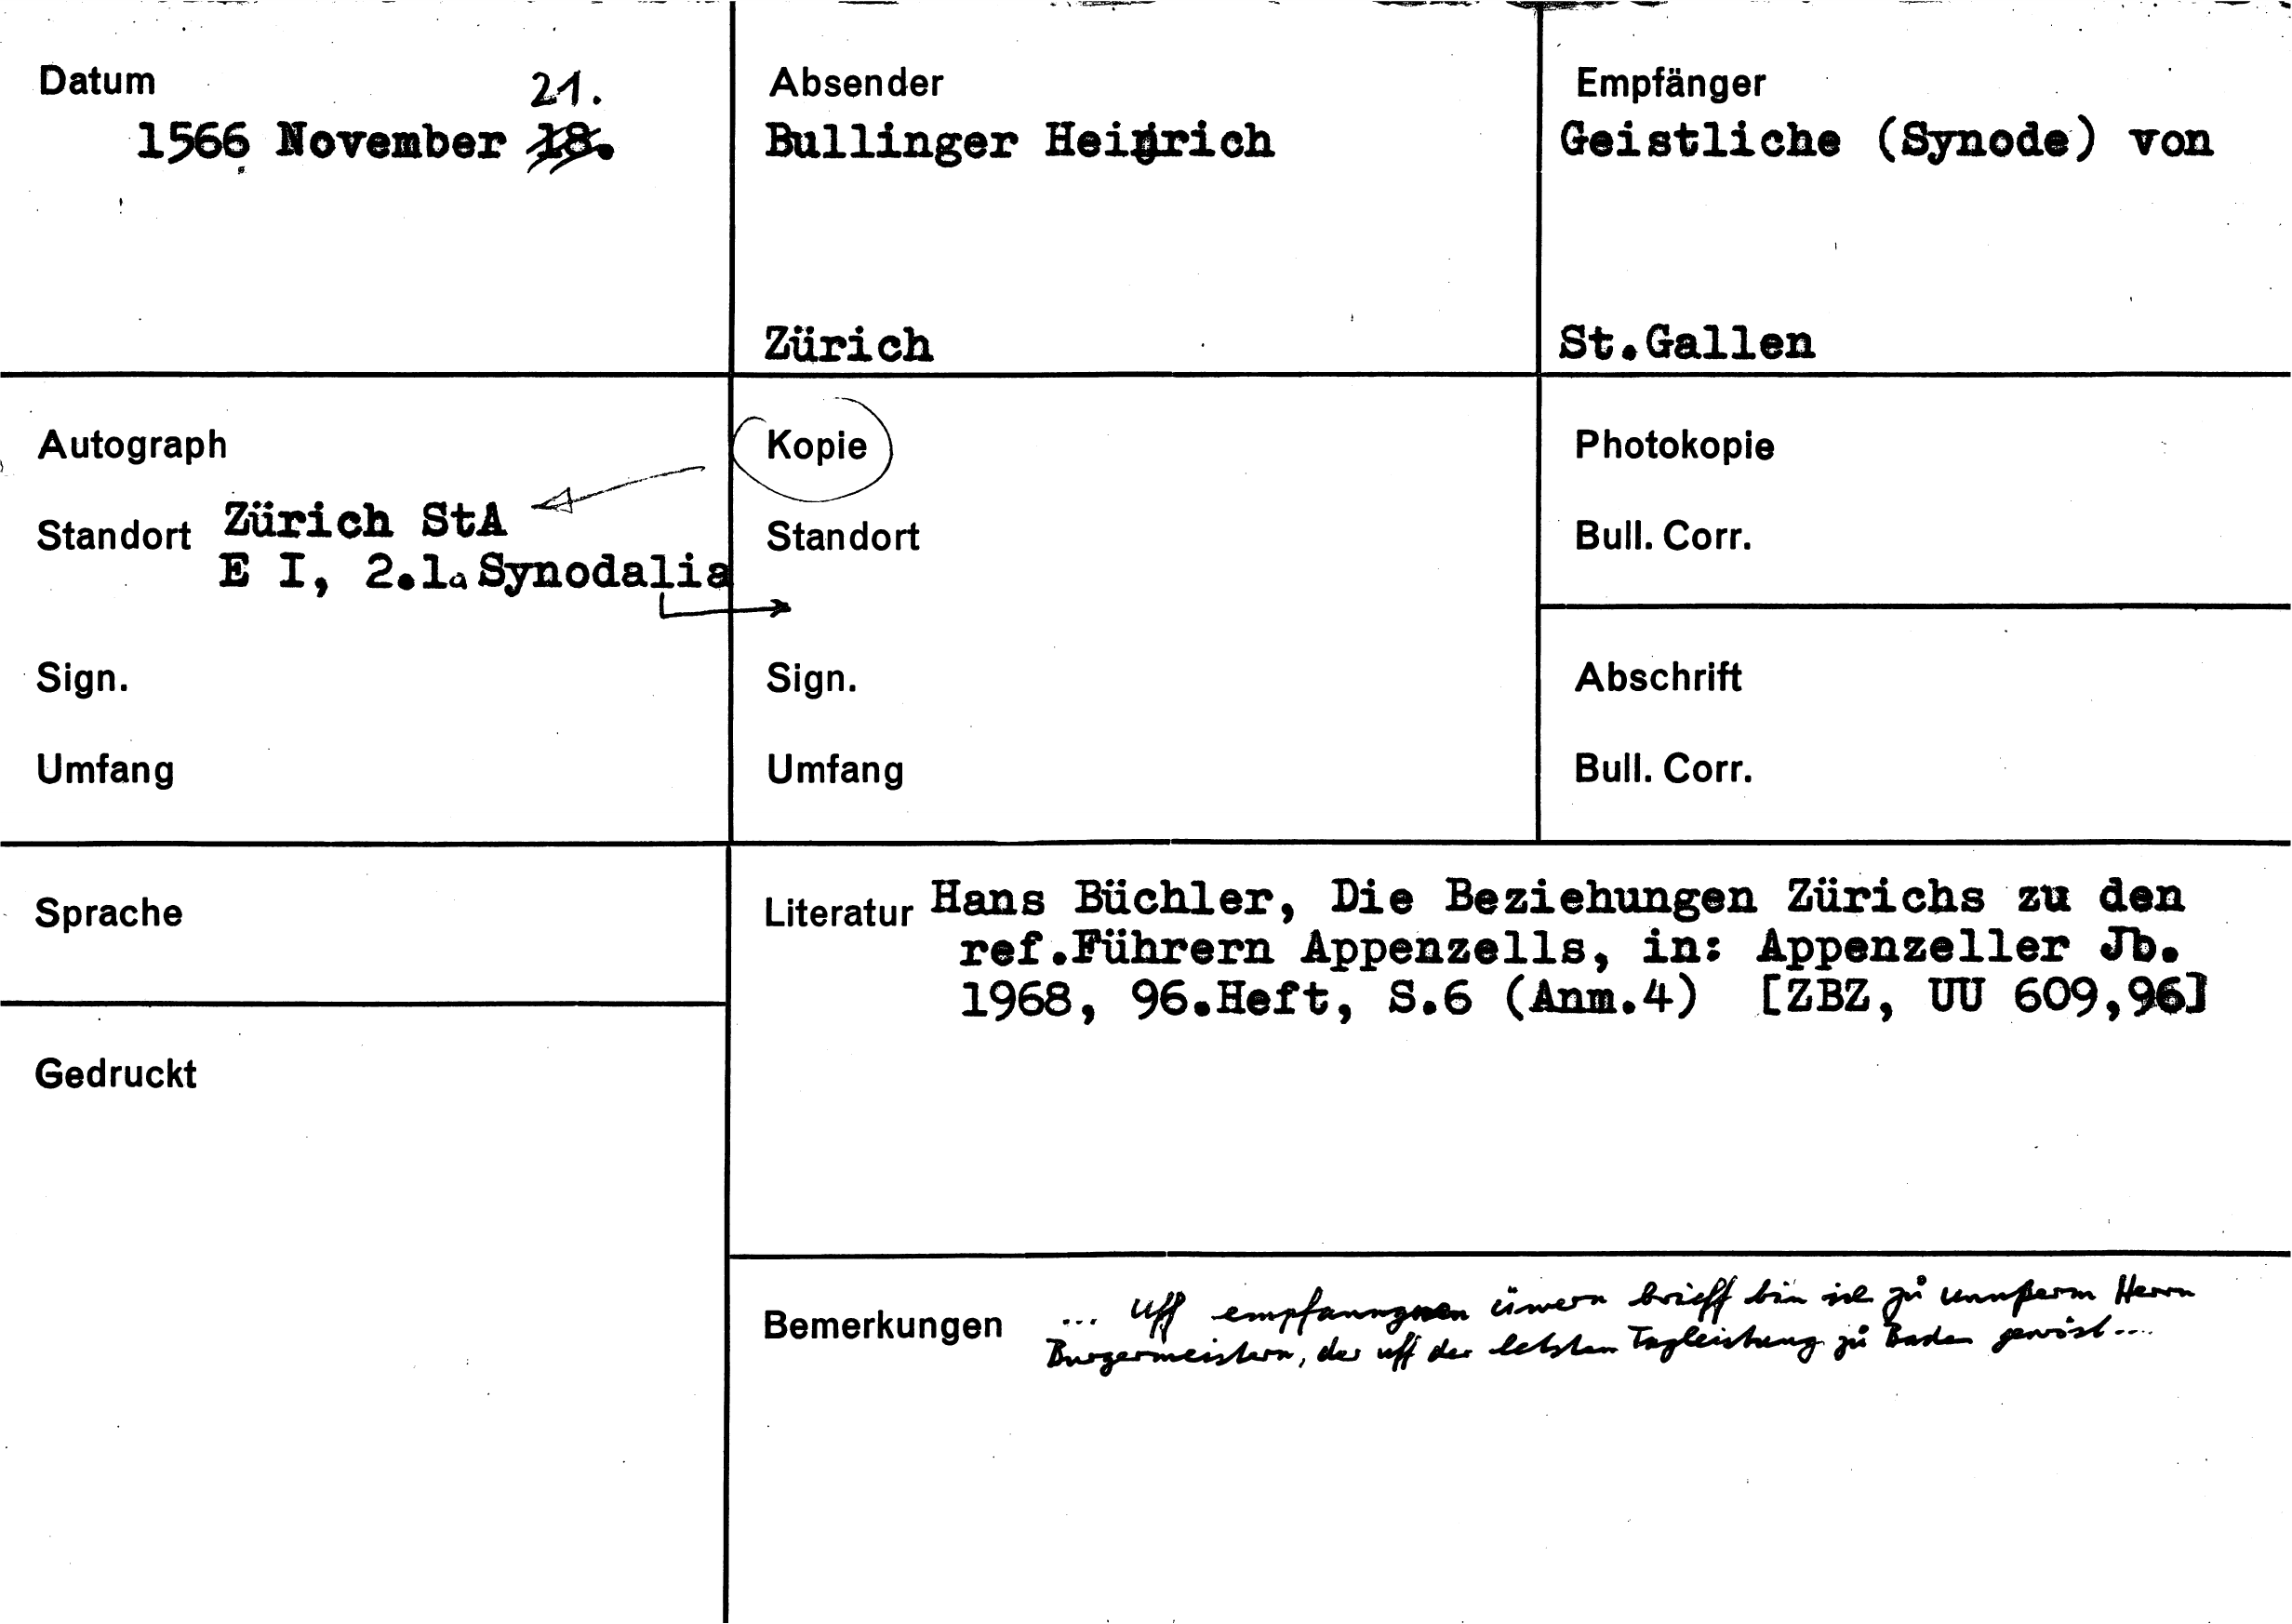 Datum
21.
1566 November 18.
Absender
Bullinger Heinrich
Zürich
Empfänger
Geistliche (Synode) von
St.Gallen
Autograph
Standort Zürich StA
E I, 2.1a Synodalia
Sign.
Umfang
Kopie
Standort
Sign.
Umfang
Photokopie
Bull. Corr.
Abschrift
Bull. Corr.
Sprache
Gedruckt
Literatur Hans Büchler, Die Beziehungen Zürichs zu den
ref.Führern Appenzells, in: Appenzeller Jb.
1968, 96.Heft, S.6 (Anm.4) [ZBZ, UU 609,96]
Bemerkungen ... uff empfanngnen üwern brieff bin ich zů unnserm Herrn
Burgermeistern, der uff der letsten Tagleistung zů Baden gewäsl....